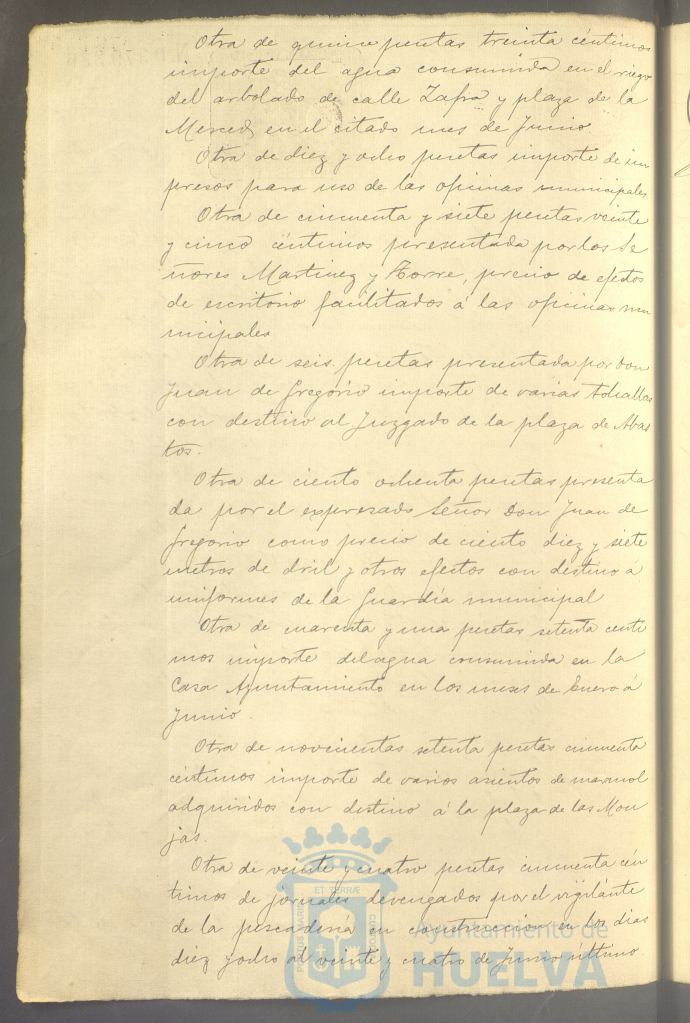 Otra de quince pesetas treinta céntimos
importe del agua consumida en el riego
del arbolado de calle Zafra y plaza de la
Merced en el citado mes de Junio.
Otra de diez y ocho pesetas importe de im
presos para uso de las oficinas municipales
Otra de cincuenta y siete pesetas veinte
y cinco céntimos presentada por los Se
ñores Martinez y Torre, precio de efectos
de escritorio facilitados á las oficinas mu
nicipales
Otra de seis pesetas presentada por Don
Juan de Gregorio importe de varias tohallas
con destino al Juzgado de la plaza de Abas
tos.
Otra de ciento ochenta pesetas presenta
da por el expresado Señor Don Juan de
Gregorio como precio de ciento diez y siete
metros de dril y otros efectos con destino a
uniformes de la Guardia municipal
Otra de cuarenta y una pesetas setenta centi
mos importe del agua consumida en la
Casa Ayuntamiento en los meses de Enero á
Junio.
Otra de novecientas setenta pesetas cincuenta
céntimos importe de varios asientos de marmol
adquiridos con destino á la plaza de las Mon
jas.
Otra de veinte y cuatro pesetas cincuenta cén
timos de jornales devengados por el vigilante
de la pescaderia en construcción en los dias
diez y ocho al veinte y cuatro de Junio último.
PORTUS MARIS ET TERRÆ CUSTODIA
Ayuntamiento de
HUELVA